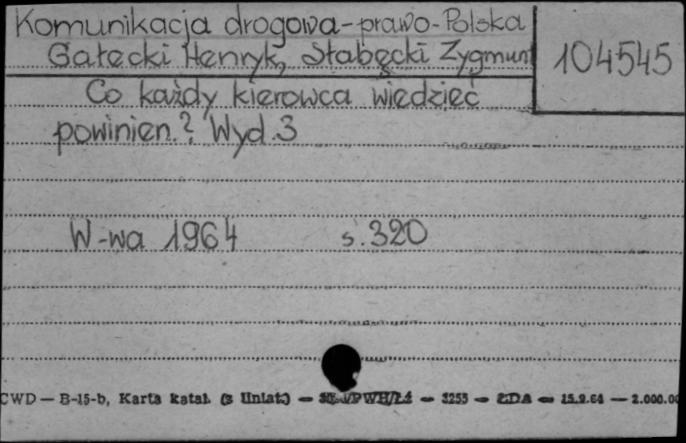 Komunikacja drogowa-prawo-Polska
Gałecki Henryk, Słabęcki Zygmunt
104545
Co każdy kierowca wiedzieć
powinien? Wyd. 3
W-wa 1964 s. 320
CWD — B-15-b, Karta katal. (s liniat.) — — 3253 — ŁDA — 15.9.64 — 2.000.00